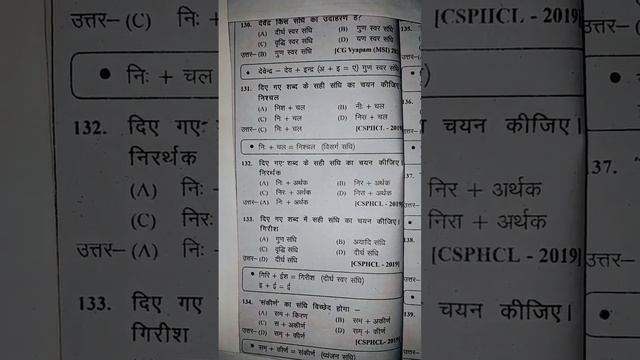 130. देवेन्द्र किस संधि का उदाहरण है?
(A) दीर्घ स्वर संधि (B) गुण स्वर संधि
(C) वृद्धि स्वर संधि (D) यण स्वर संधि
उत्तर– (B) गुण स्वर संधि [CG Vyapam (MSI)
• देवेन्द्र – देव + इन्द्र (अ + इ = ए) गुण स्वर संधि
131. दिए गए शब्द के सही संधि का चयन कीजिए
निश्चल
(A) निश + चल (B) नीः + चल
(C) निः + चल (D) निस + चल
उत्तर– (C) निः + चल [CSPHCL - 2019
• निः + चल = निश्चल (विसर्ग संधि)
132. दिए गए शब्द के सही संधि का चयन कीजिए।
निरर्थक
(A) निः + अर्थक (B) निर + अर्थक
(C) निरः + अर्थक (D) निरा + अर्थक
उत्तर– (A) निः + अर्थक [CSPHCL - 2019
133. दिए गए शब्द में सही संधि का चयन कीजिए।
गिरीश
(A) गुण संधि (B) अयादि संधि
(C) वृद्धि संधि (D) दीर्घ संधि
उत्तर– (D) दीर्घ संधि [CSPHCL - 2019]
• गिरि + ईश = गिरीश (दीर्घ स्वर संधि)
इ + ई = ई
134. 'संकीर्ण' का संधि विच्छेद होगा –
(A) सम + किरण (B) सम + अकीर्ण
(C) स + अकीर्ण (D) सम् + कीर्ण
उत्तर– (D) सम् + कीर्ण [CSPHCL - 2019]
• सम् + कीर्ण = संकीर्ण (व्यंजन संधि)
135.
136.
137.
138.
139.
उत्तर– (C) निः +
• निः + चल
132. दिए गए
निरर्थक
(A) निः
(C) निरः
उत्तर– (A) निः
133. दिए गए
गिरीश
[CSPHCL - 2019
चयन कीजिए।
निर + अर्थक
निरा + अर्थक
[CSPHCL - 2019]
चयन कीजिए।
उत्तर–
137.
उत्तर–